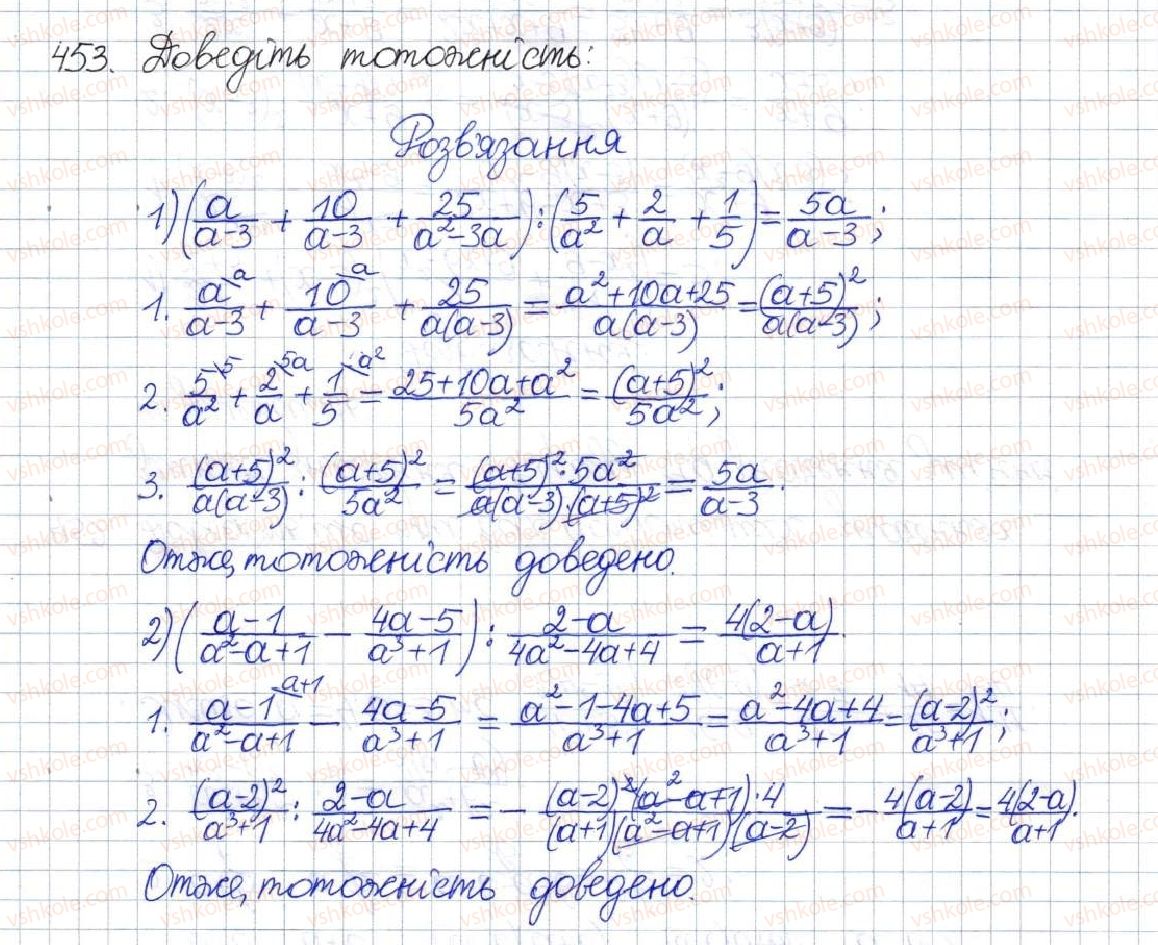 453. Доведіть тотожність:
Розв'язання
1) (a/(a-3) + 10/(a-3) + 25/(a²-3a)) : (5/a² + 2/a + 1/5) = 5a/(a-3);
1. a^a/(a-3) + 10^a/(a-3) + 25/(a(a-3)) = (a²+10a+25)/(a(a-3)) = (a+5)²/(a(a-3));
2. 5^5/a² + 2^5a/a + 1^a²/5 = (25+10a+a²)/(5a²) = (a+5)²/(5a²);
3. (a+5)²/(a(a-3)) : (a+5)²/(5a²) = ((a+5)²·5a²)/(a(a-3)·(a+5)²) = 5a/(a-3).
Отже, тотожність доведено.
2) ((a-1)/(a²-a+1) - (4a-5)/(a³+1)) : (2-a)/(4a²-4a+4) = 4(2-a)/(a+1).
1. (a-1)^a+1/(a²-a+1) - (4a-5)/(a³+1) = (a²-1-4a+5)/(a³+1) = (a²-4a+4)/(a³+1) = (a-2)²/(a³+1);
2. (a-2)²/(a³+1) : (2-a)/(4a²-4a+4) = -((a-2)²(a²-a+1)·4)/((a+1)(a²-a+1)(a-2)) = -4(a-2)/(a+1) = 4(2-a)/(a+1).
Отже, тотожність доведено.
vshkole.com